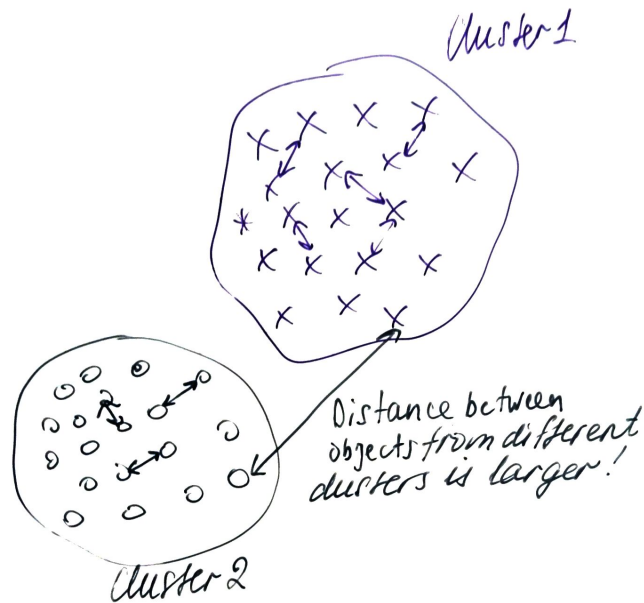 Cluster 1
Distance between
objects from different
clusters is larger!
Cluster 2